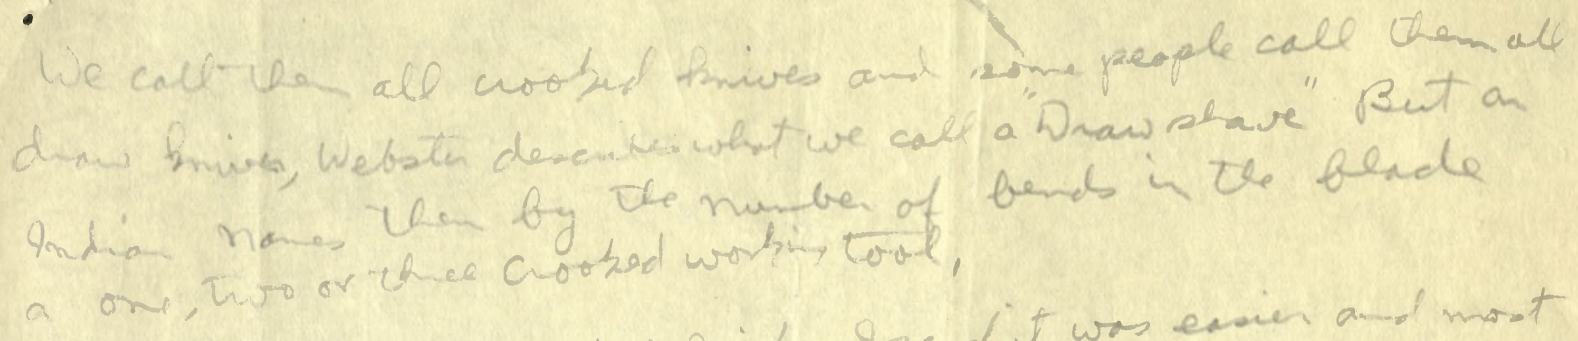 We call them all crooked knives and some people call them all
draw knives, Webster describes what we call a "Draw shave" But an
Indian names them by the number of bends in the blade
a one, two or three crooked working tool,
it was easier and most